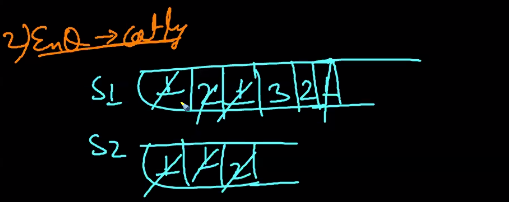 2) EnQ → costly
S1 1 2 1 3 2 1
S2 1 1 2